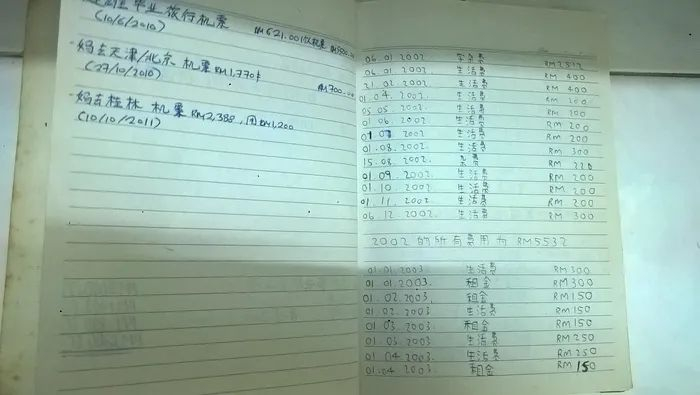 毕业旅行机票 RM621.00
(10/6/2010)
·妈去天津/北京 机票RM1,770 RM700.00
(27/10/2010)
·妈去桂林 机票RM2,388, 团RM1,200
(10/10/2011)
06.01.2002 学杂费 RM2512
06.01.2002 生活费 RM 400
21.02.2002 生活费 RM 400
01.04.2002. 生活费 RM 200
05.05.2002. 生活费 RM 200
01.06.2002. 生活费 RM 200
01.07.2002 生活费 RM 200
01.08.2002. 生活费 RM 300
15.08.2002. 杂费 RM 220
01.09.2002. 生活费 RM 200
01.10.2002. 生活费 RM 200
01.11.2002. 生活费 RM 200
06.12.2002. 生活费 RM 300
2002 的所有费用为 RM5532
01.01.2003. 生活费 RM300
01.01.2003. 租金 RM300
01.02.2003. 租金 RM150
01.02.2003 生活费 RM150
01.03.2003. 租金 RM150
01.03.2003 生活费 RM250
01.04.2003. 生活费 RM250
01.04.2003 租金 RM150